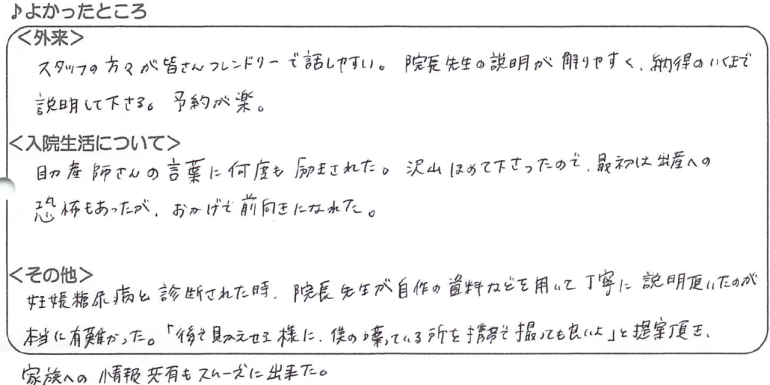 ♪よかったところ
<外来>
スタッフの方々が皆さんフレンドリーで話しやすい。 院長先生の説明が解りやすく、納得のいくまで
説明して下さる。 予約が楽。
<入院生活について>
助産師さんの言葉に何度も励まされた。 沢山ほめて下さったので、最初は出産への
恐怖もあったが、おかげで前向きになれた。
<その他>
妊娠糖尿病と診断された時、院長先生が自作の資料などを用いて丁寧に説明頂いたのが
本当に有難かった。「後で見かえせる様に、僕の喋っている所を携帯で撮っても良いよ」と提案頂き、
家族への情報共有もスムーズに出来た。